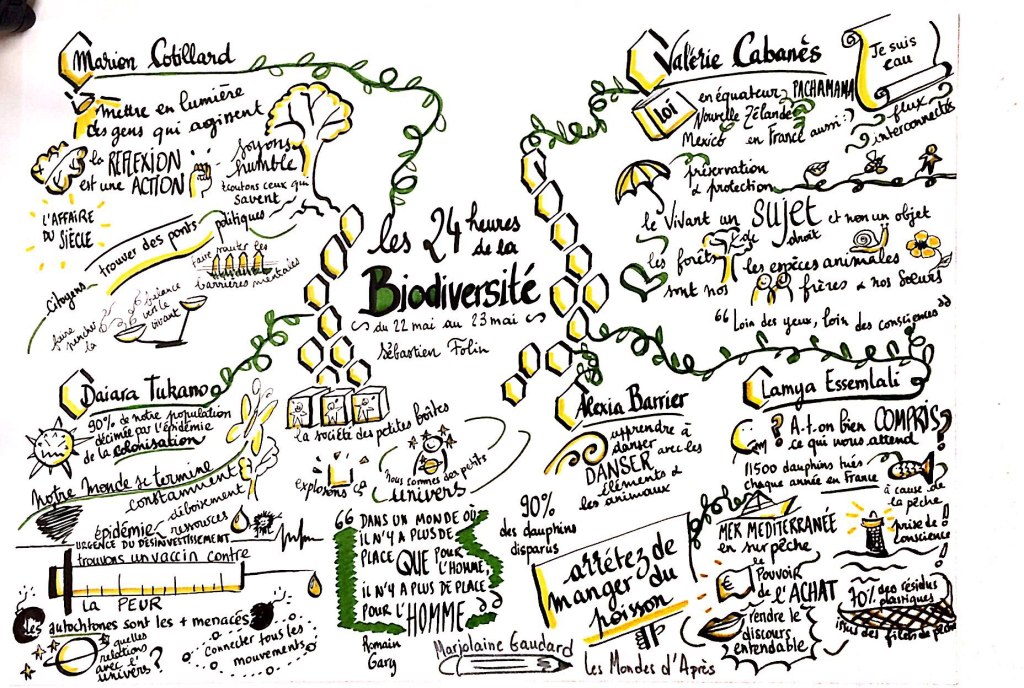 les 24 heures
de la
Biodiversité
du 22 mai au 23 mai
Sébastien Folin
Marion Cotillard
mettre en lumière
des gens qui agissent
la REFLEXION
est une ACTION
soyons
humble
écoutons ceux qui
savent
L'AFFAIRE
DU SIÈCLE
trouver des ponts politiques
citoyens
faire sauter les
barrières mentales
faire pencher
la
balance
vers le
vivant
Valérie Cabanès
Je suis
eau
LOI
en équateur PACHAMAMA
Nouvelle Zélande
Mexico en France aussi :)
flux
interconnectés
préservation
& protection
le vivant un SUJET et non un objet
de
droit
les forêts
les espèces animales
sont nos frères & nos soeurs
“Loin des yeux, loin des consciences”
Daiara Tukano
90% de notre population
décimée par l'épidémie
de la colonisation
notre Monde se termine
constamment
déboisement
épidémie
ressources
URGENCE DU DÉSINVESTISSEMENT
trouvons un vaccin contre
LA PEUR
les autochtones sont les + menacés
quelles
relations
avec l'
univers ?
connecter tous les
mouvements
la société des petites boîtes
explosons ça
nous sommes des petits
univers
“DANS UN MONDE OÙ
IL N'Y A PLUS DE
PLACE QUE POUR
L'HOMME,
IL N'Y A PLUS DE PLACE
POUR L'HOMME”
Romain
Gary
Alexia Barrier
apprendre à
danser
DANSER avec les
éléments &
les animaux
90%
des dauphins
disparus
arrêtez de
manger du
poisson
Marjolaine Gaudard
Les Mondes d'Après
Lamya Essemlali
A-t-on bien COMPRIS
ce qui nous attend ?
11500 dauphins tués
chaque année en France
à cause de
la pêche
MER MEDITERRANÉE
en sur pêche
prise de
conscience !
le
POUVOIR
de l'ACHAT
€
70% des résidus
plastiques
issus des filets de pêche
rendre le
discours
entendable